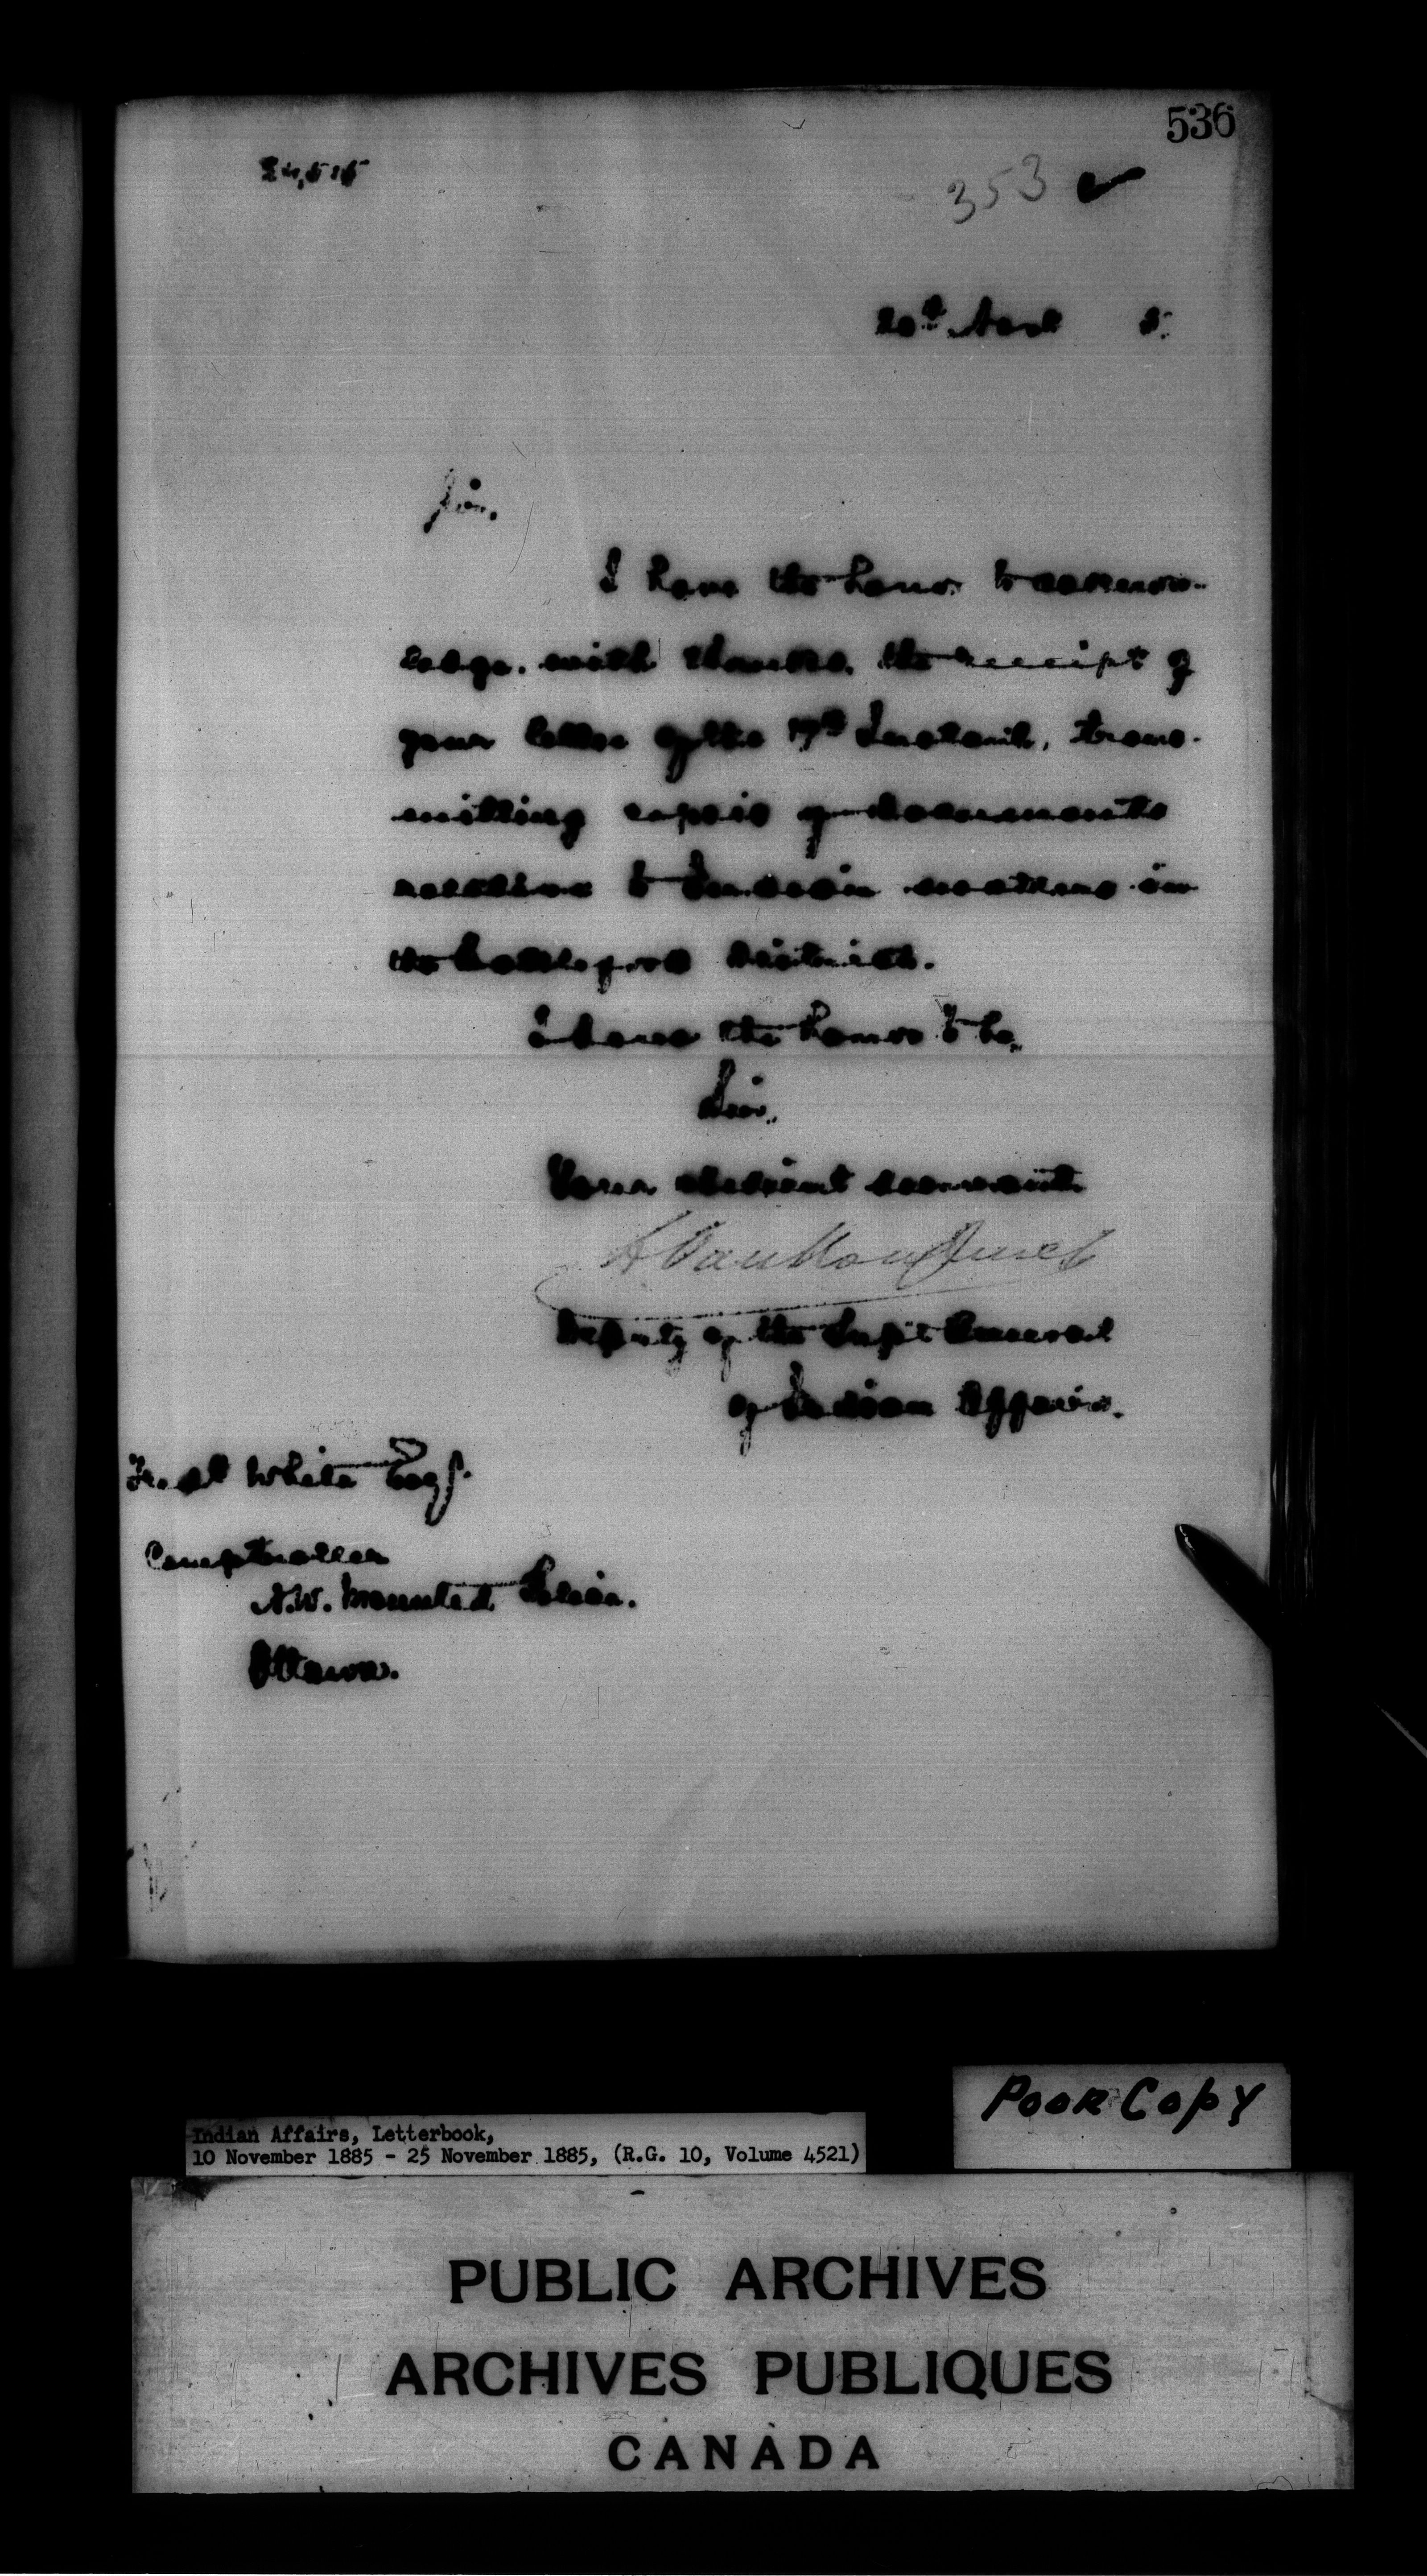 536
24,515
353
20th Novr 5.
Sir,
I have the honor to acknow-
ledge, with thanks, the receipt of
your letter of the 17th Instant, trans-
mitting copies of documents
relative to Indian matters in
the Battleford District.
I have the honor to be,
Sir,
Your obedient servant
L VanKoughnet
Deputy of the Supt General
of Indian Affairs.
Fred White Esq.
Comptroller
N.W. Mounted Police.
Ottawa.
Poor Copy
Indian Affairs, Letterbook,
10 November 1885 - 25 November 1885, (R.G. 10, Volume 4521)
PUBLIC ARCHIVES
ARCHIVES PUBLIQUES
CANADA